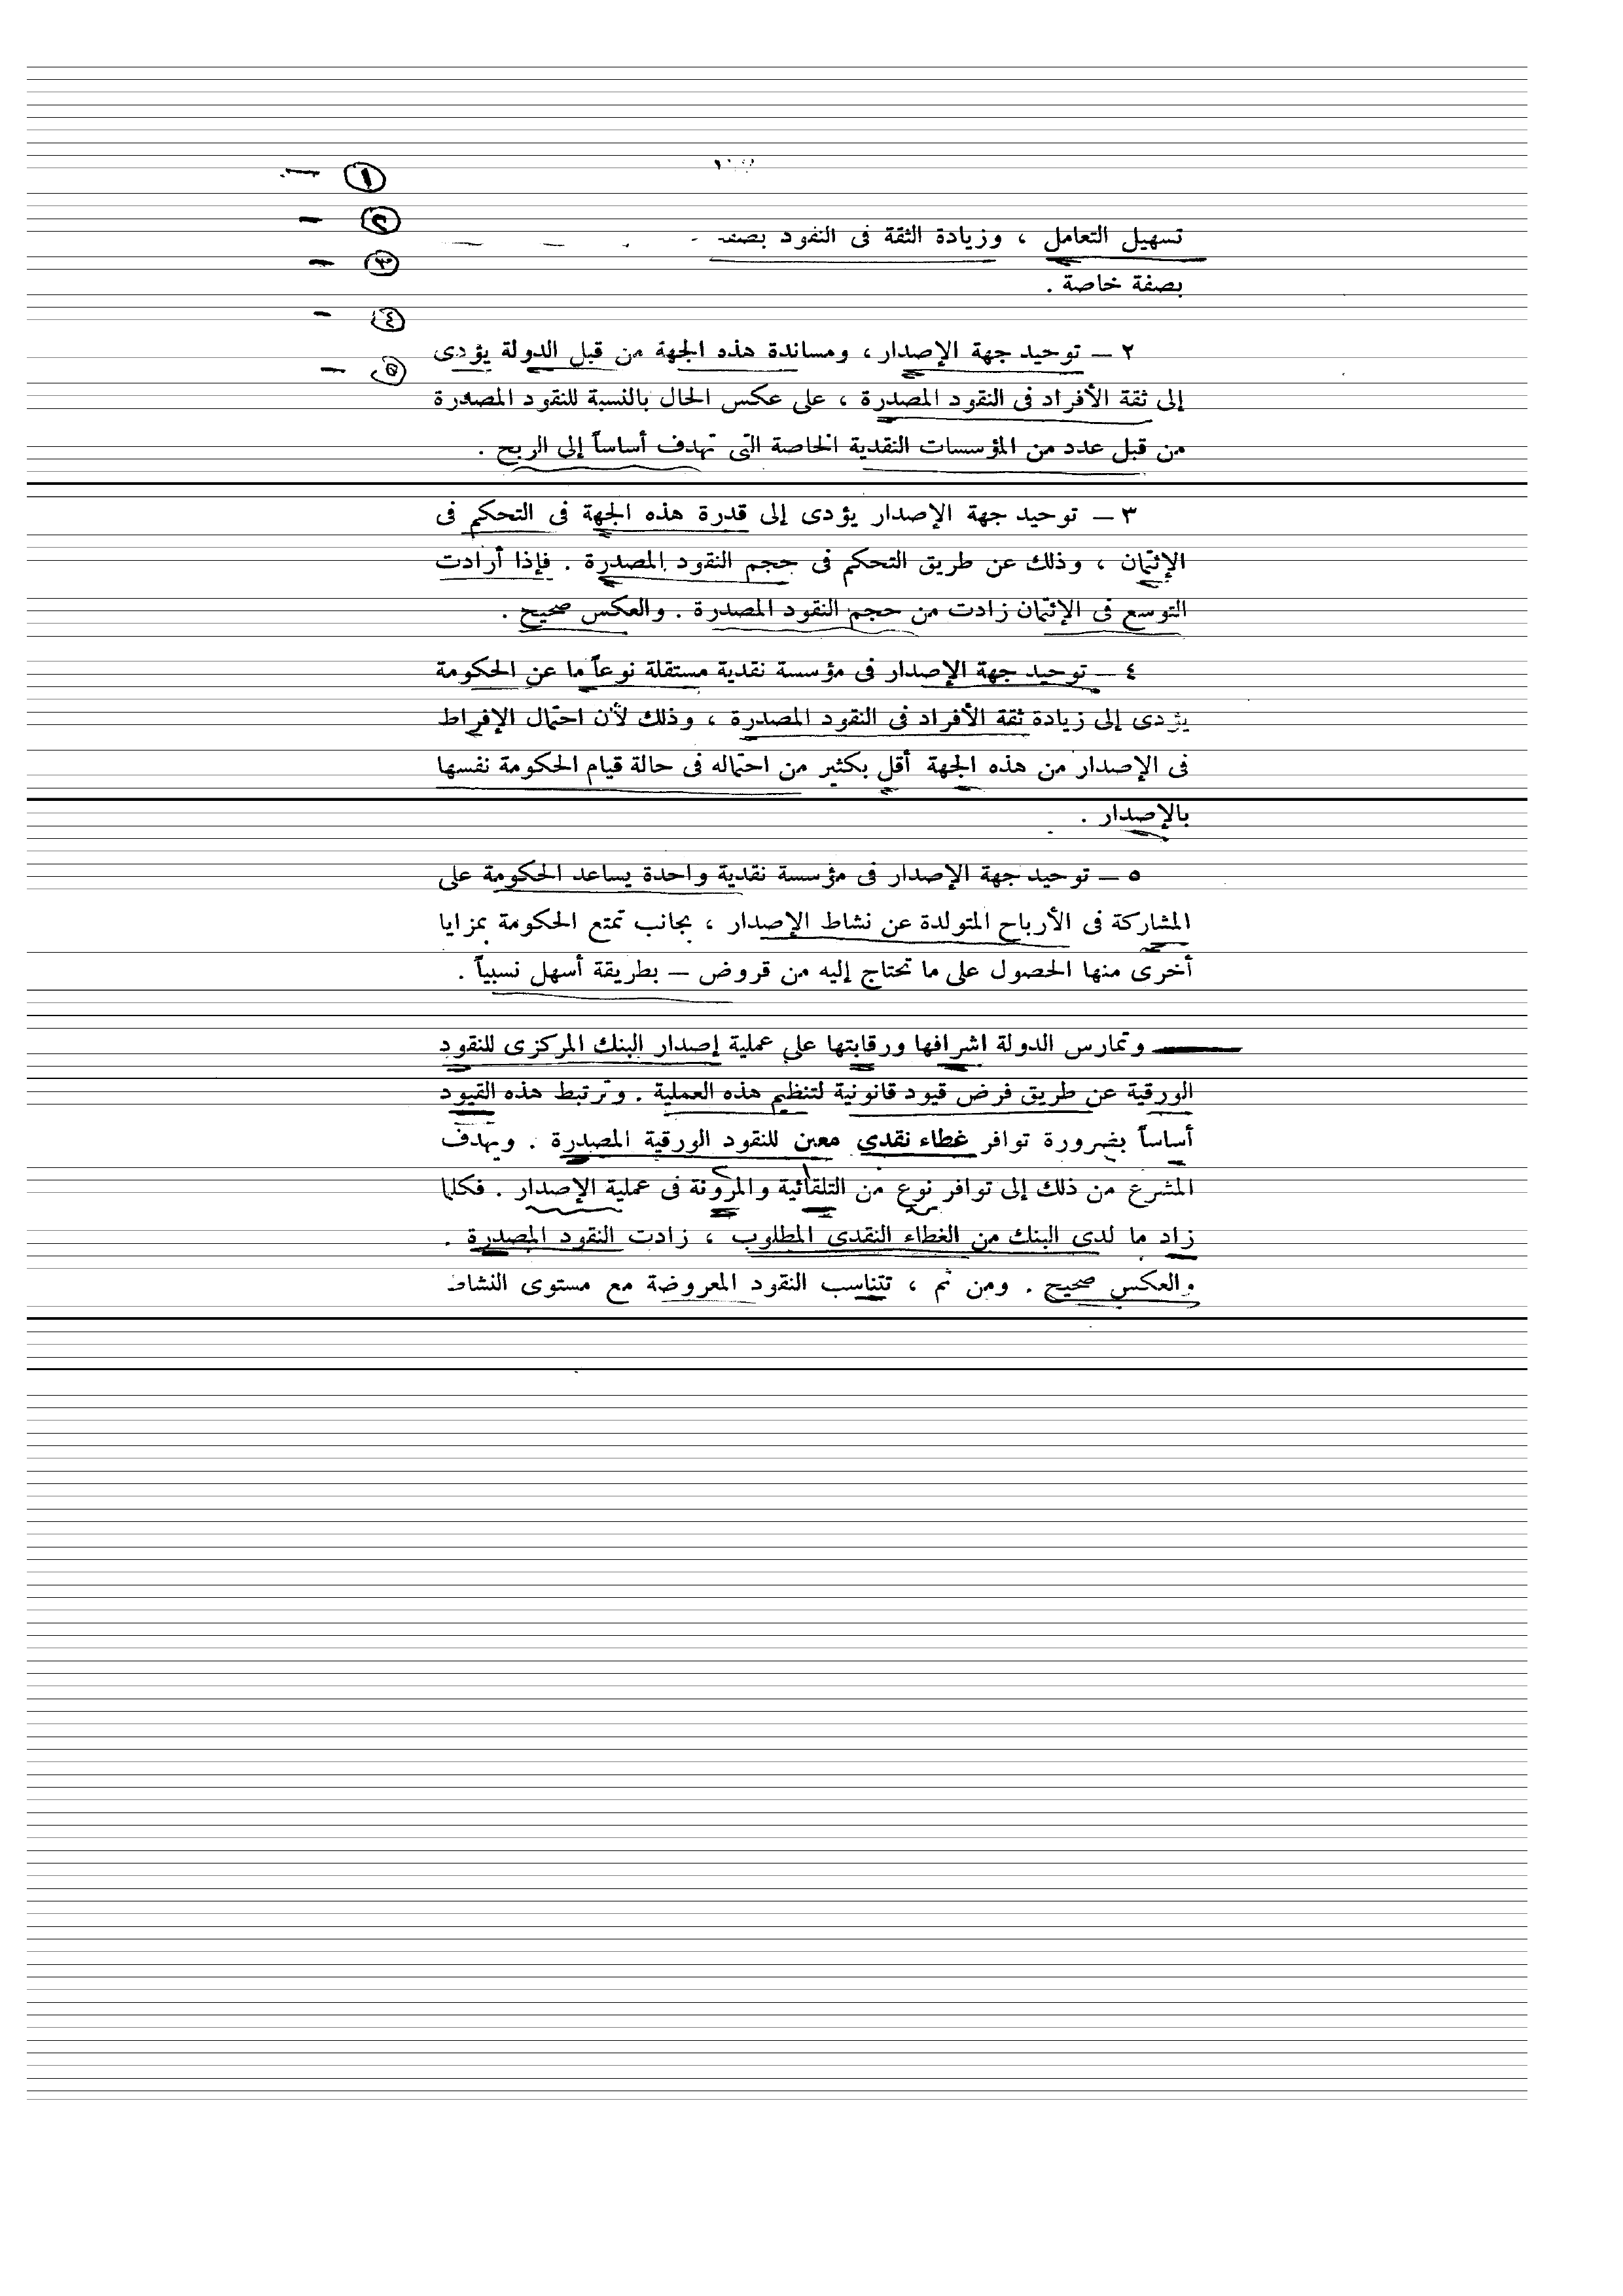 تسهيل التعامل ، وزيادة الثقة فى النقود
بصفة خاصة .
٢ — توحيد جهة الإصدار ، ومساندة هذه الجهة من قبل الدولة يؤدى
إلى ثقة الأفراد فى النقود المصدرة ، على عكس الحال بالنسبة للنقود المصدرة
من قبل عدد من المؤسسات النقدية الخاصة التى تهدف أساساً إلى الربح .
٣ — توحيد جهة الإصدار يؤدى إلى قدرة هذه الجهة فى التحكم فى
الإئتمان ، وذلك عن طريق التحكم فى حجم النقود المصدرة . فإذا أرادت
التوسع فى الإئتمان زادت من حجم النقود المصدرة . والعكس صحيح .
٤ — توحيد جهة الإصدار فى مؤسسة نقدية مستقلة نوعاً ما عن الحكومة
يؤدى إلى زيادة ثقة الأفراد فى النقود المصدرة ، وذلك لأن احتمال الإفراط
فى الإصدار من هذه الجهة أقل بكثير من احتماله فى حالة قيام الحكومة نفسها
بالإصدار .
٥ — توحيد جهة الإصدار فى مؤسسة نقدية واحدة يساعد الحكومة على
المشاركة فى الأرباح المتولدة عن نشاط الإصدار ، بجانب تمتع الحكومة بمزايا
أخرى منها الحصول على ما تحتاج إليه من قروض — بطريقة أسهل نسبياً .
وتمارس الدولة اشرافها ورقابتها على عملية إصدار البنك المركزى للنقود
الورقية عن طريق فرض قيود قانونية لتنظيم هذه العملية . وترتبط هذه القيود
أساساً بضرورة توافر غطاء نقدى معين للنقود الورقية المصدرة . ويهدف
المشرع من ذلك إلى توافر نوع من التلقائية والمرونة فى عملية الإصدار . فكلما
زاد ما لدى البنك من الغطاء النقدى المطلوب ، زادت النقود المصدرة .
والعكس صحيح . ومن ثم ، تتناسب النقود المعروضة مع مستوى النشاط
١ —
٢ —
٣ —
٤ —
٥ —